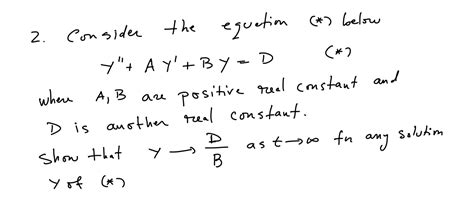 2. Consider the equation (*) below
y'' + A y' + B y = D (*)
where A, B are positive real constant and
D is another real constant.
Show that y → D/B as t→∞ for any solution
y of (*)